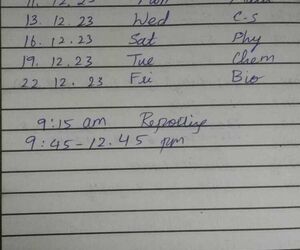 11. 12. 23
13. 12. 23 Wed C-S
16. 12. 23 Sat Phy
19. 12. 23 Tue Chem
22 12. 23 Fri Bio
9:15 am Reporting
9:45-12.45 pm